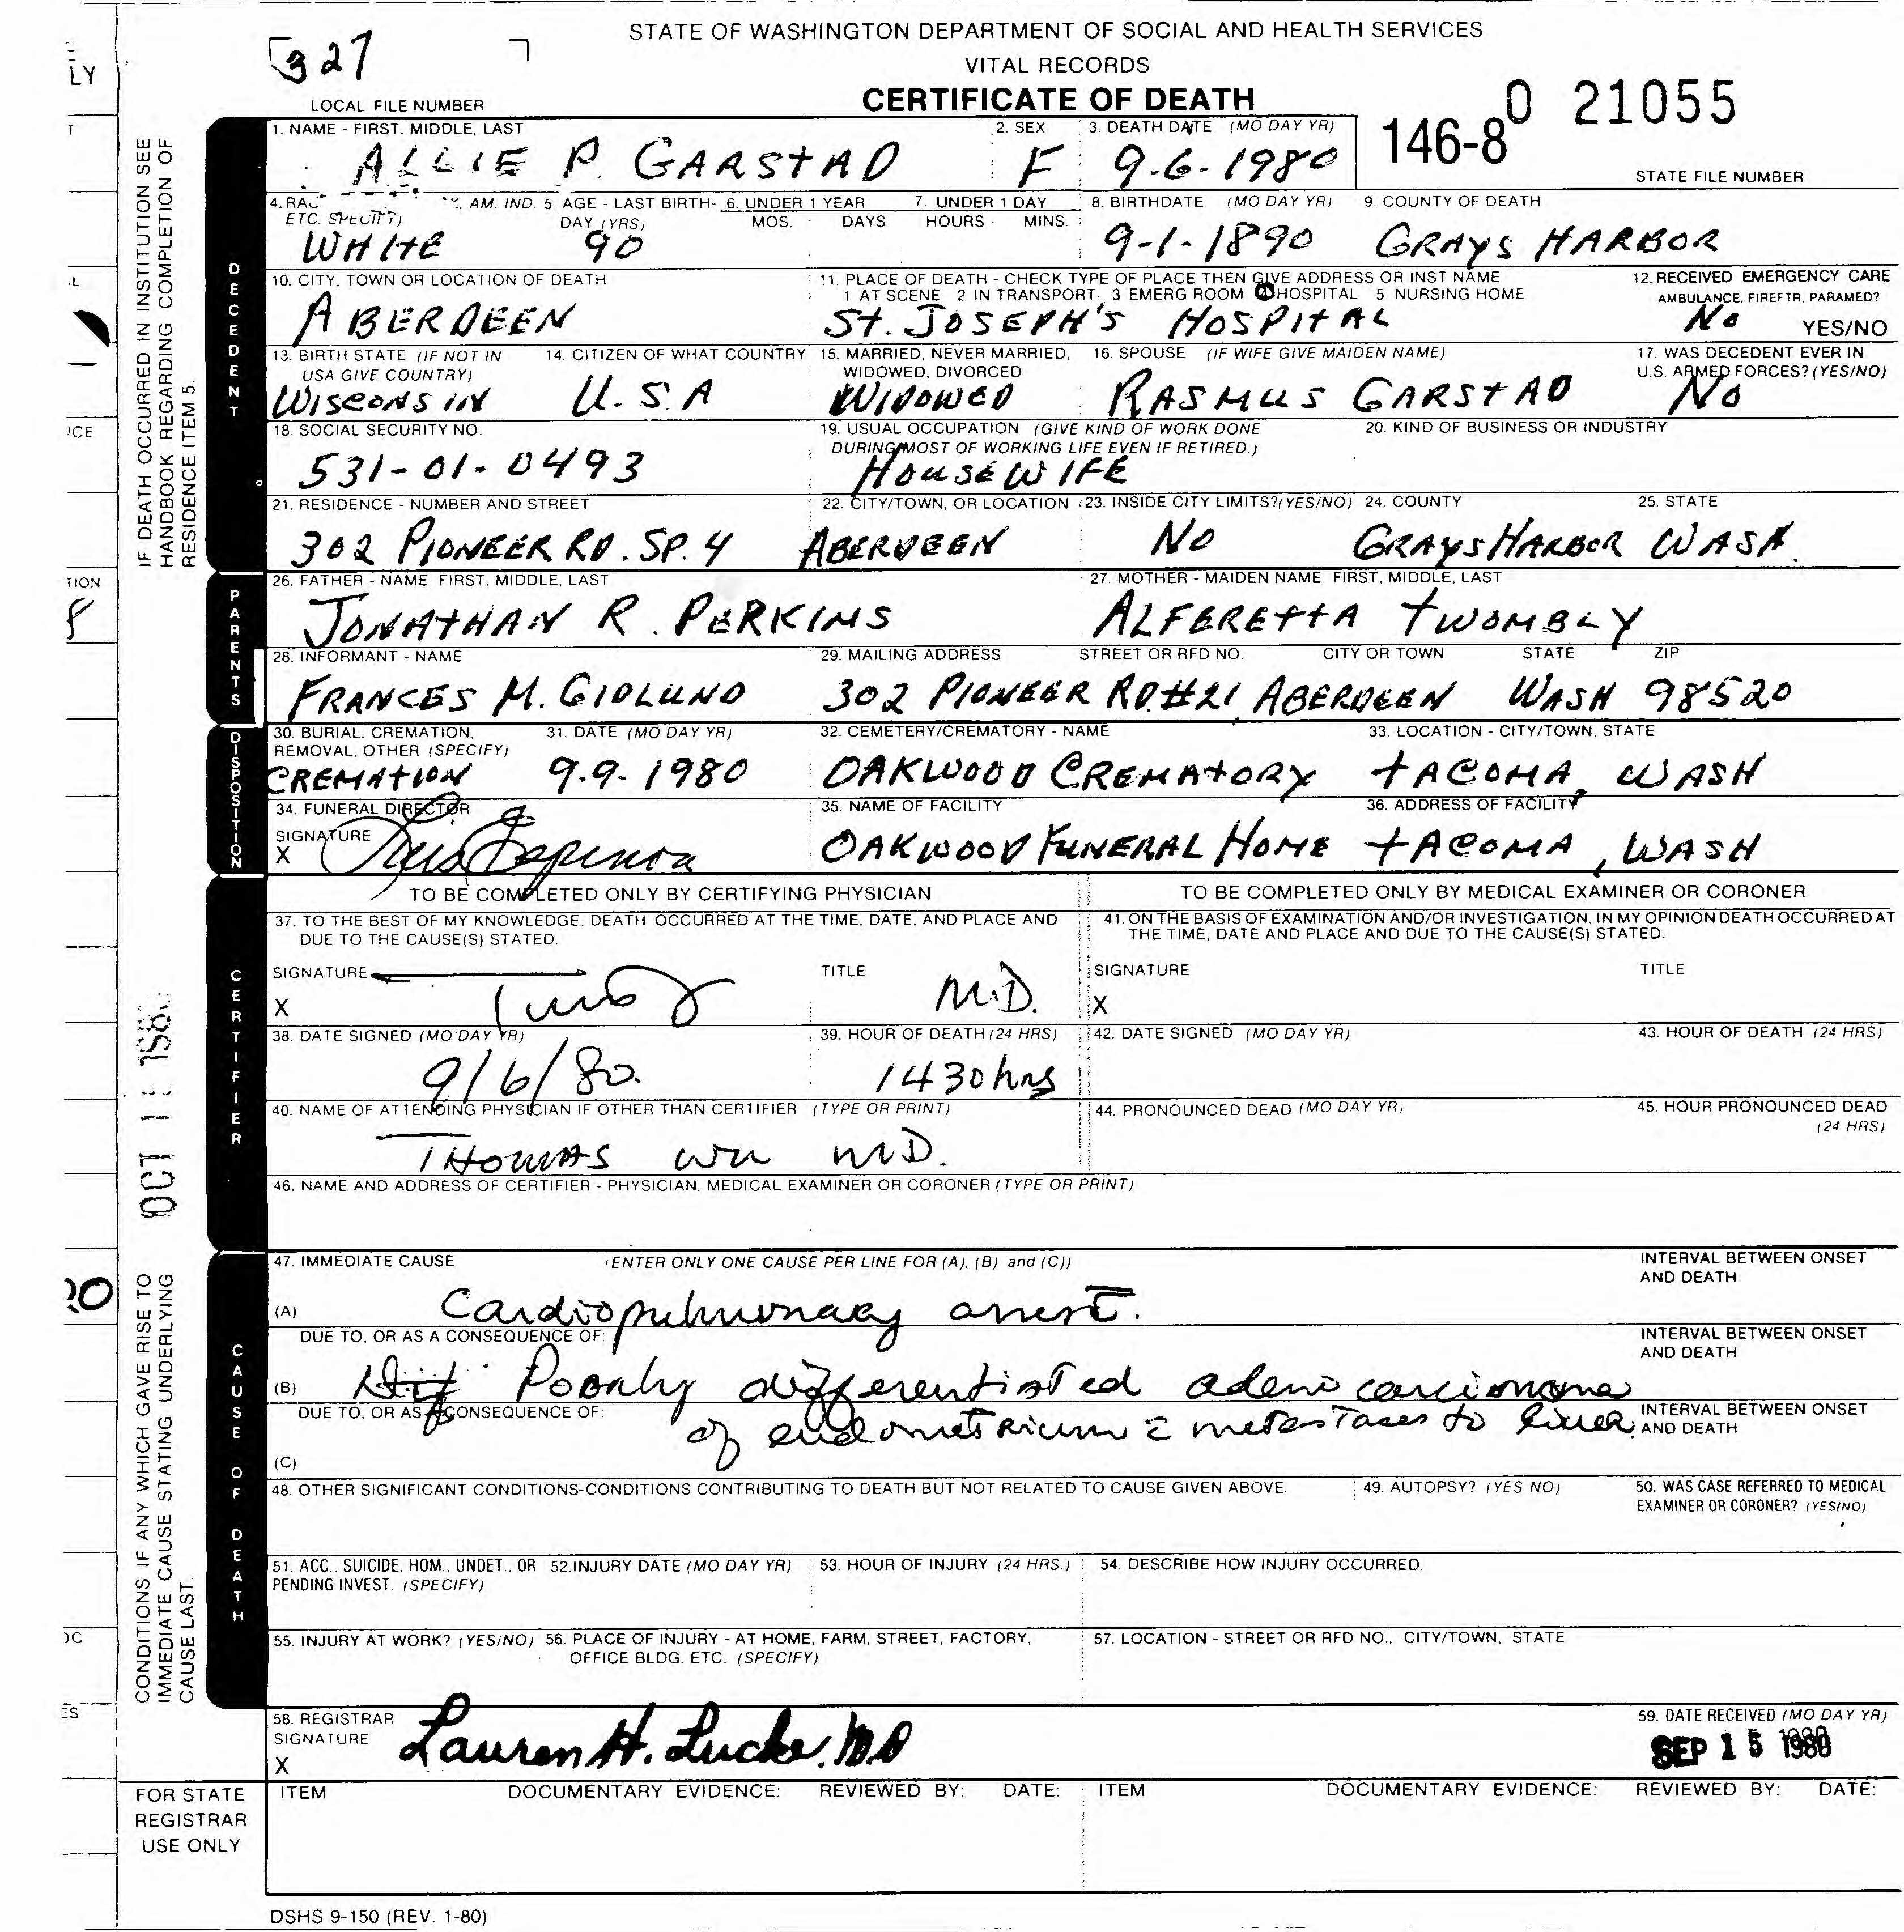 STATE OF WASHINGTON DEPARTMENT OF SOCIAL AND HEALTH SERVICES
327
VITAL RECORDS
LOCAL FILE NUMBER
CERTIFICATE OF DEATH
146-8 0 21055
STATE FILE NUMBER
1. NAME - FIRST, MIDDLE, LAST 2. SEX 3. DEATH DATE (MO DAY YR)
ALLIE P. GARSTAD F 9-6-1980
4. RAC AM. IND. 5. AGE - LAST BIRTH- 6. UNDER 1 YEAR 7. UNDER 1 DAY 8. BIRTHDATE (MO DAY YR) 9. COUNTY OF DEATH
ETC. SPECIFY) DAY (YRS) MOS. DAYS HOURS MINS.
WHITE 90 9-1-1890 GRAYS HARBOR
10. CITY, TOWN OR LOCATION OF DEATH 11. PLACE OF DEATH - CHECK TYPE OF PLACE THEN GIVE ADDRESS OR INST NAME 12. RECEIVED EMERGENCY CARE
1 AT SCENE 2 IN TRANSPORT. 3 EMERG ROOM 4 HOSPITAL 5. NURSING HOME AMBULANCE, FIREFTR, PARAMED?
ABERDEEN ST. JOSEPH'S HOSPITAL No YES/NO
13. BIRTH STATE (IF NOT IN 14. CITIZEN OF WHAT COUNTRY 15. MARRIED, NEVER MARRIED, 16. SPOUSE (IF WIFE GIVE MAIDEN NAME) 17. WAS DECEDENT EVER IN
USA GIVE COUNTRY) WIDOWED, DIVORCED U.S. ARMED FORCES? (YES/NO)
WISCONSIN U.S.A WIDOWED RASMUS GARSTAD No
18. SOCIAL SECURITY NO. 19. USUAL OCCUPATION (GIVE KIND OF WORK DONE 20. KIND OF BUSINESS OR INDUSTRY
DURING MOST OF WORKING LIFE EVEN IF RETIRED.)
531-01-0493 HOUSEWIFE
21. RESIDENCE - NUMBER AND STREET 22. CITY/TOWN, OR LOCATION 23. INSIDE CITY LIMITS? (YES/NO) 24. COUNTY 25. STATE
302 PIONEER RD. SP. 4 ABERDEEN NO GRAYS HARBOR WASH.
26. FATHER - NAME FIRST, MIDDLE, LAST 27. MOTHER - MAIDEN NAME FIRST, MIDDLE, LAST
JONATHAN R. PERKINS ALFERETTA TWOMBLY
28. INFORMANT - NAME 29. MAILING ADDRESS STREET OR RFD NO. CITY OR TOWN STATE ZIP
FRANCES M. GIDLUND 302 PIONEER RD. #21 ABERDEEN WASH 98520
30. BURIAL, CREMATION, 31. DATE (MO DAY YR) 32. CEMETERY/CREMATORY - NAME 33. LOCATION - CITY/TOWN, STATE
REMOVAL, OTHER (SPECIFY)
CREMATION 9-9-1980 OAKWOOD CREMATORY TACOMA, WASH
34. FUNERAL DIRECTOR 35. NAME OF FACILITY 36. ADDRESS OF FACILITY
SIGNATURE
X OAKWOOD FUNERAL HOME TACOMA, WASH
TO BE COMPLETED ONLY BY CERTIFYING PHYSICIAN TO BE COMPLETED ONLY BY MEDICAL EXAMINER OR CORONER
37. TO THE BEST OF MY KNOWLEDGE, DEATH OCCURRED AT THE TIME, DATE, AND PLACE AND 41. ON THE BASIS OF EXAMINATION AND/OR INVESTIGATION, IN MY OPINION DEATH OCCURRED AT
DUE TO THE CAUSE(S) STATED. THE TIME, DATE AND PLACE AND DUE TO THE CAUSE(S) STATED.
SIGNATURE TITLE SIGNATURE TITLE
X M.D. X
38. DATE SIGNED (MO DAY YR) 39. HOUR OF DEATH (24 HRS) 42. DATE SIGNED (MO DAY YR) 43. HOUR OF DEATH (24 HRS)
9/6/80. 1430 hrs
40. NAME OF ATTENDING PHYSICIAN IF OTHER THAN CERTIFIER (TYPE OR PRINT) 44. PRONOUNCED DEAD (MO DAY YR) 45. HOUR PRONOUNCED DEAD
(24 HRS)
THOMAS WU MD.
46. NAME AND ADDRESS OF CERTIFIER - PHYSICIAN, MEDICAL EXAMINER OR CORONER (TYPE OR PRINT)
47. IMMEDIATE CAUSE (ENTER ONLY ONE CAUSE PER LINE FOR (A), (B) and (C)) INTERVAL BETWEEN ONSET
AND DEATH
(A) Cardiopulmonary arrest.
DUE TO, OR AS A CONSEQUENCE OF: INTERVAL BETWEEN ONSET
AND DEATH
(B) Poorly differentiated adenocarcinoma
DUE TO, OR AS A CONSEQUENCE OF: INTERVAL BETWEEN ONSET
of endometrium c̄ metastases to liver. AND DEATH
(C)
48. OTHER SIGNIFICANT CONDITIONS-CONDITIONS CONTRIBUTING TO DEATH BUT NOT RELATED TO CAUSE GIVEN ABOVE. 49. AUTOPSY? (YES NO) 50. WAS CASE REFERRED TO MEDICAL
EXAMINER OR CORONER? (YES/NO)
51. ACC., SUICIDE, HOM., UNDET., OR 52. INJURY DATE (MO DAY YR) 53. HOUR OF INJURY (24 HRS.) 54. DESCRIBE HOW INJURY OCCURRED.
PENDING INVEST. (SPECIFY)
55. INJURY AT WORK? (YES/NO) 56. PLACE OF INJURY - AT HOME, FARM, STREET, FACTORY, 57. LOCATION - STREET OR RFD NO., CITY/TOWN, STATE
OFFICE BLDG. ETC. (SPECIFY)
58. REGISTRAR 59. DATE RECEIVED (MO DAY YR)
SIGNATURE
X Lauren H. Lucke, MD SEP 15 1980
FOR STATE ITEM DOCUMENTARY EVIDENCE: REVIEWED BY: DATE: ITEM DOCUMENTARY EVIDENCE: REVIEWED BY: DATE:
REGISTRAR
USE ONLY
DSHS 9-150 (REV. 1-80)
IF DEATH OCCURRED IN INSTITUTION SEE
HANDBOOK REGARDING COMPLETION OF
RESIDENCE ITEM 5.
CONDITIONS IF ANY WHICH GAVE RISE TO
IMMEDIATE CAUSE STATING UNDERLYING
CAUSE LAST.
DECEDENT
PARENTS
DISPOSITION
CERTIFIER
CAUSE OF DEATH